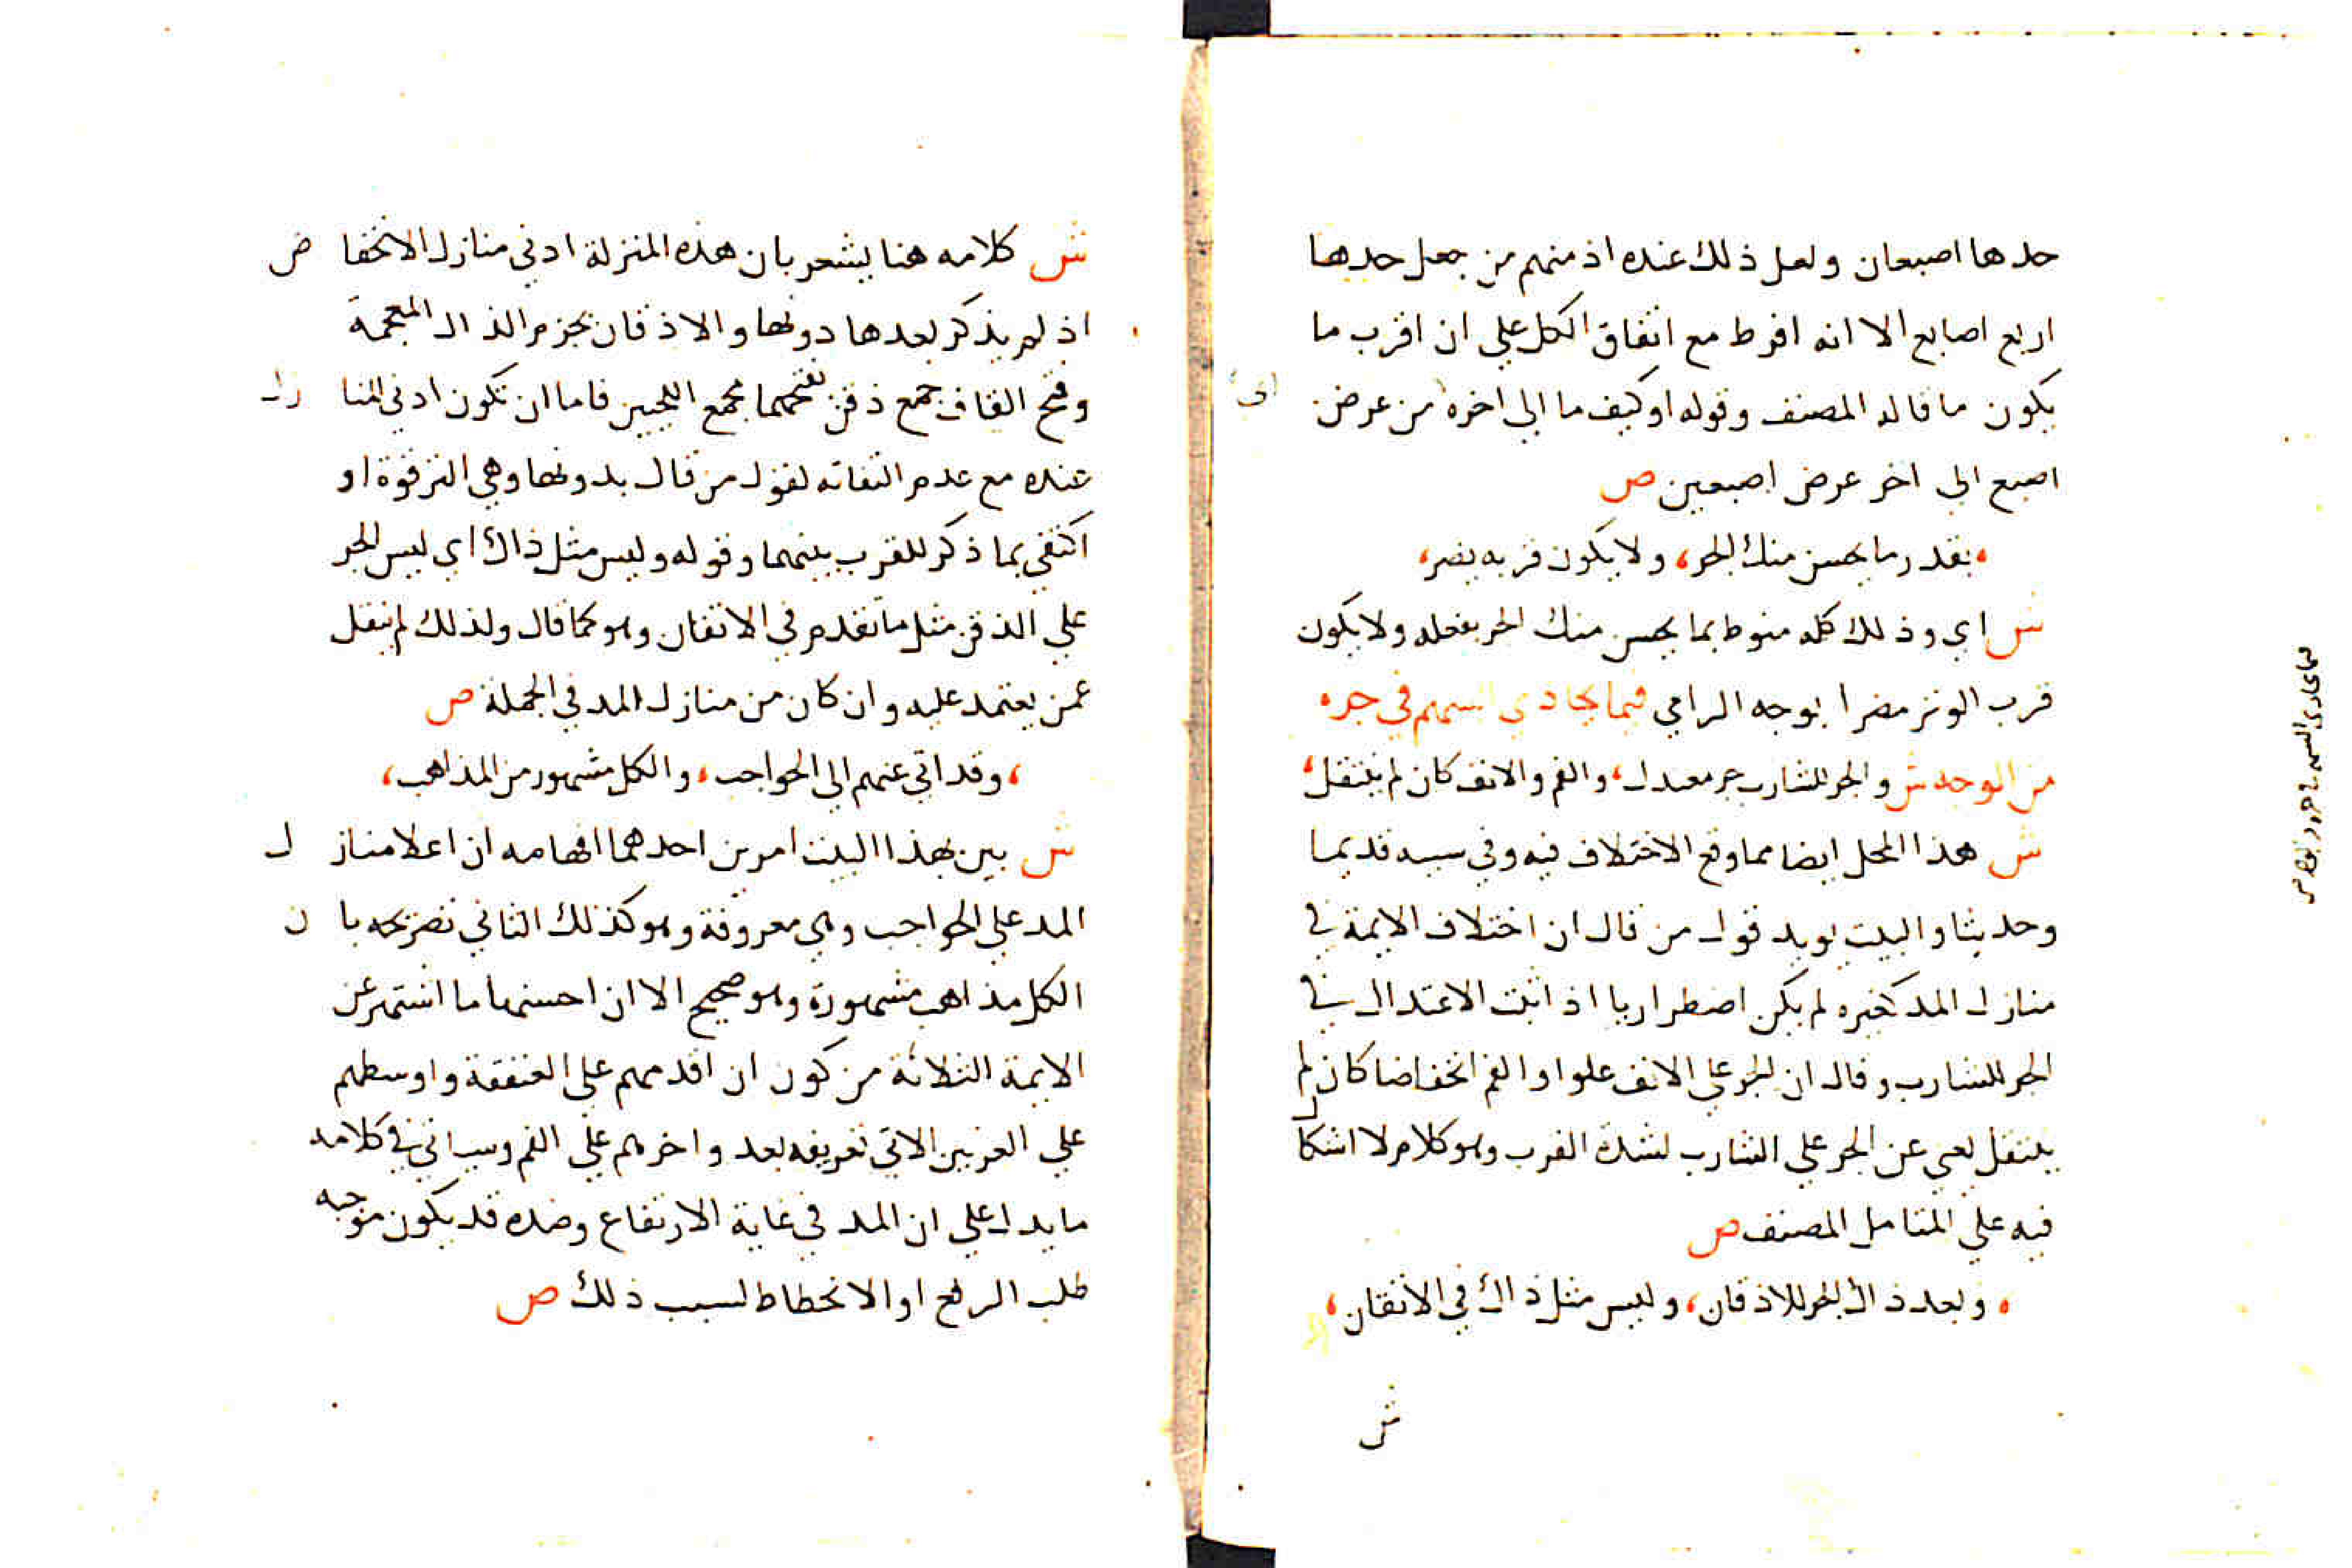 حدها اصبعان ولعل ذلك عنده اذ منهم من جعل حدها
اربع اصابع الا انه افرط مع اتفاق الكل علي ان اقرب ما
يكون ما قاله المصنف وقوله او كيف ما الي اخره من عرض
اي
اصبع الي اخر عرض اصبعين ص
، بقدر ما يحسن منك الجر، ولا يكون قربه يضر،
ش اي وذلك كله منوط بما يحسن منك الجر بفعله ولا يكون
قرب الوتر مضرا بوجه الرامي فيما يحاذي السهم في جره
من الوجه ش والجر للشارب جر معدل، والفم والانف كان لم ينتقل،
ش هذا المحل ايضا مما وقع الاختلاف فيه وفي سببه قديما
وحديثا والبيت يويد قول من قال ان اختلاف الايمة في
منازل المد كغيره لم يكن اضطراريا اذ اثبت الاعتدال في
الجر للشارب وقال ان الجر علي الانف علوا والفم انخفاضا كان لم
ينتقل يعني عن الجر علي الشارب لشدة القرب وهو كلام لا اشكال
فيه علي المتامل المصنف ص
، وبعد ذاك الجر للاذقان، وليس مثل ذاك في الاتقان،
ش
فيما يحاذي السهم في جره من الوجه ص
ش كلامه هنا يشعر بان هذه المنزلة ادني منازل الانخفاض
اذ لم يذكر بعدها دونها والاذقان بجزم الذال المعجمة
وفتح القاف جمع ذقن بفتحهما مجمع اللحيين فاما ان تكون ادني المنازل
عنده مع عدم التفاته لقول من قال بدونها وهي الترقوة او
اكتفي بما ذكر للقرب بينهما وقوله وليس مثل ذاك اي ليس الجر
علي الذقن مثل ما تقدم في الاتقان وهو كما قال ولذلك لم ينقل
عمن يعتمد عليه وان كان من منازل المد في الجملة ص
، وقد اتي عنهم الي الحواجب، والكل مشهور من المذاهب،
ش بين بهذا البيت امرين احدهما افهامه ان اعلا منازل
المد علي الحواجب وهي معروفة وهو كذلك الثاني تصريحه بان
الكل مذاهب مشهورة وهو صحيح الا ان احسنها ما اشتهر عن
الايمة الثلاثة من كون ان اقدمهم علي العنفقة واوسطهم
علي الغرتين الاتي تعريفه بعد واخرهم علي الفم وسياتي في كلامه
ما يدل علي ان المد في غاية الارتفاع وضده قد يكون موجبه
طلب الرفع او الانحطاط لسبب ذلك ص